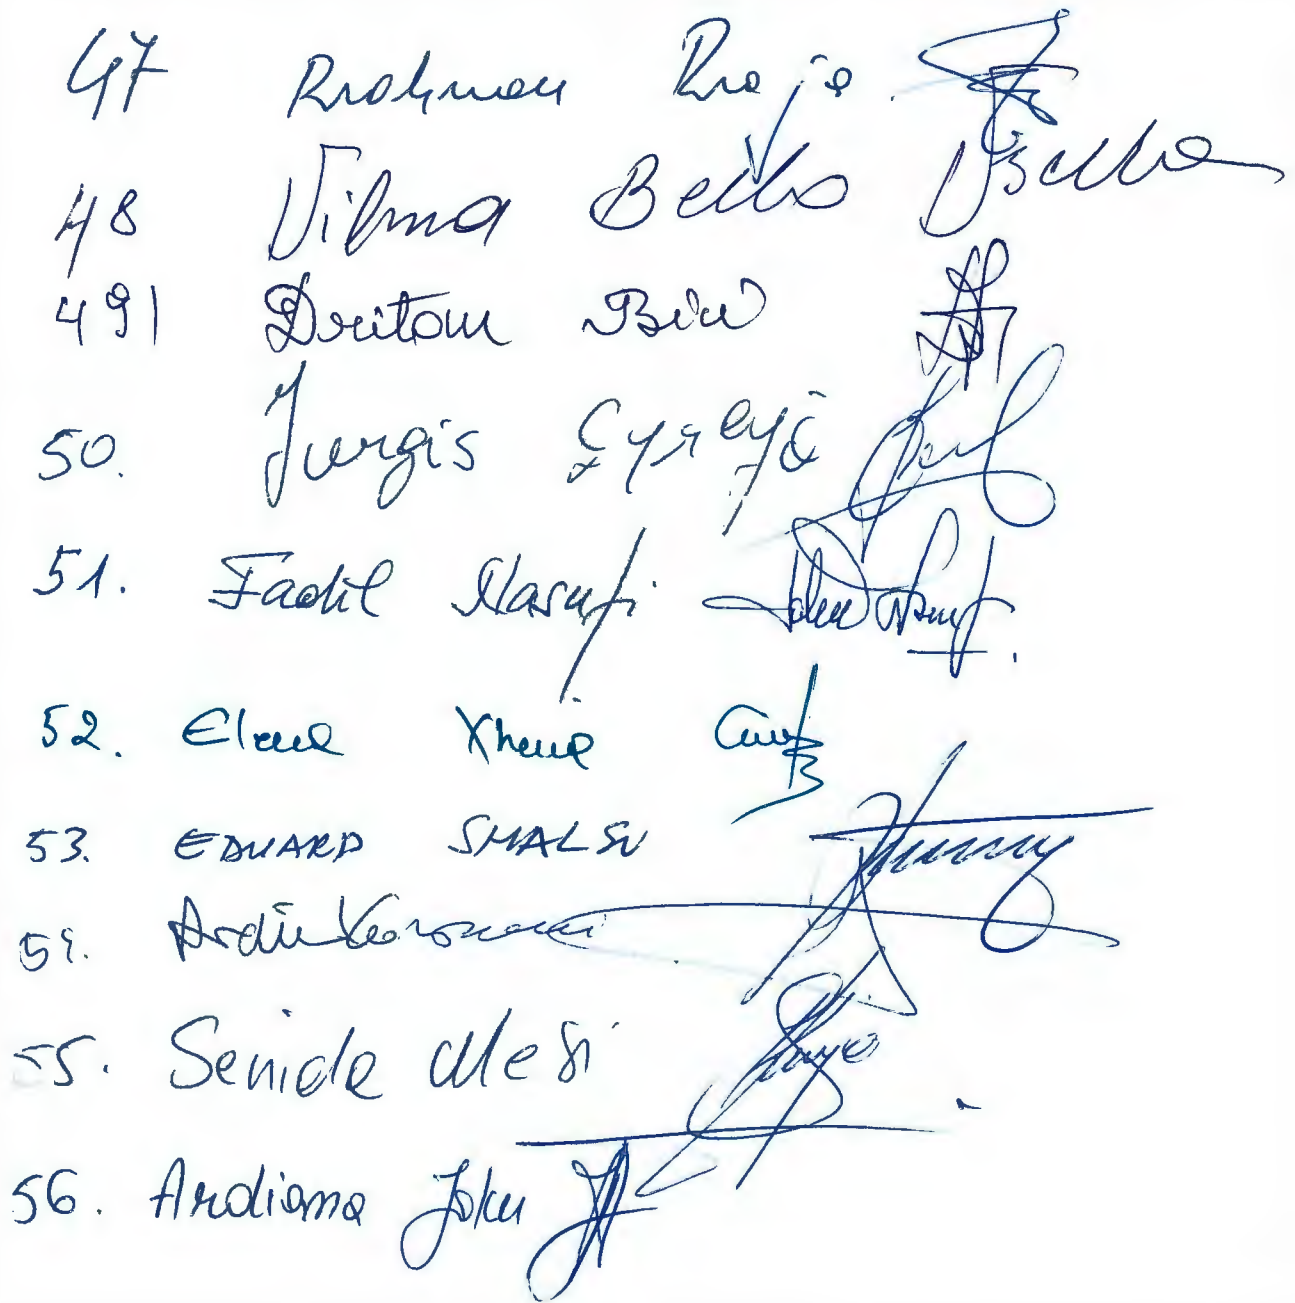 47 Rrahman Rraja
48 Vilma Bello Bello
491 Dritan Bici
50. Jurgis Çyrbja
51. Fadil Nasufi
52. Elena Xhina
53. EDUARD SHALSI
54. Ardit Konomi
55. Senida Mesi
56. Ardiana Jaku